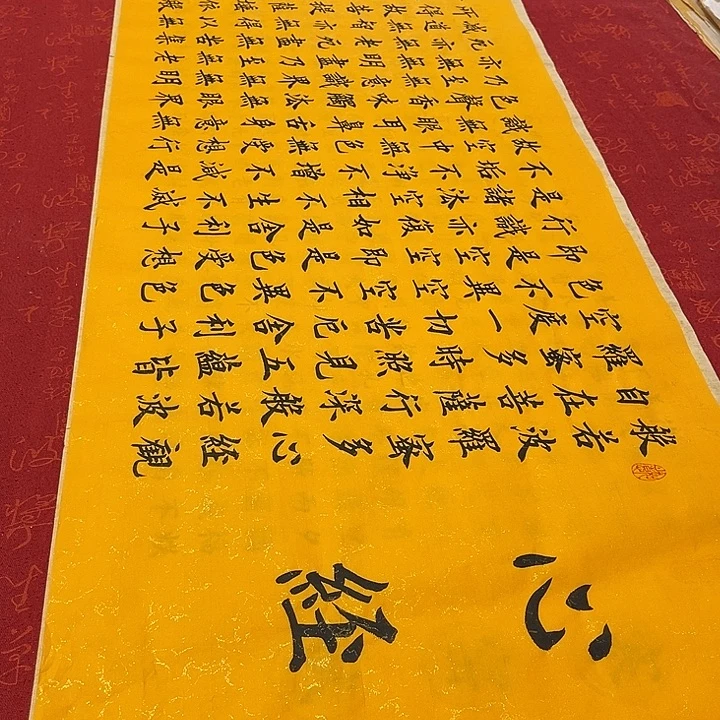 心経
般若波羅蜜多心経観
自在菩薩行深般若波
羅蜜多時照見五蘊皆
空度一切苦厄舍利子
色不異空空不異色色
即是空空即是色受想
行識亦復如是舍利子
是諸法空相不生不滅
不垢不净不增不減是
故空中無色無受想行
識無眼耳鼻舌身意無
色聲香味觸法無眼界
乃至無意識界無無明
亦無無明盡乃至無老
死亦無老死盡無苦集
滅道無智亦無得以無
所得故菩提薩